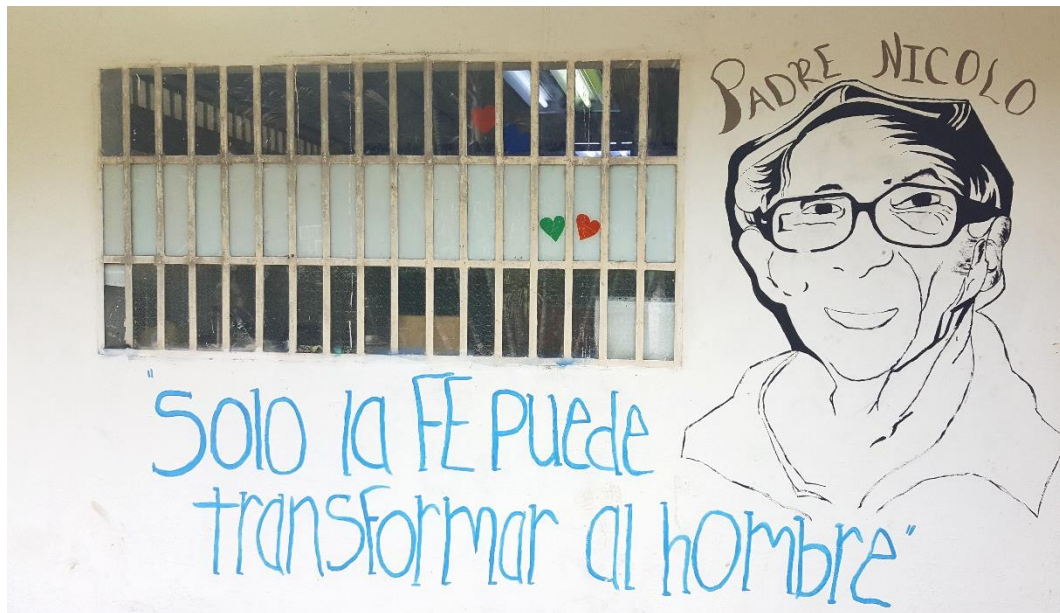 PADRE NICOLO
"Solo la FE puede
transformar al hombre"